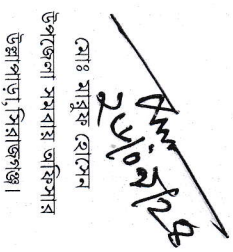 মোঃ মারুফ হোসেন
উপজেলা সমবায় অফিসার
উল্লাপাড়া, সিরাজগঞ্জ।